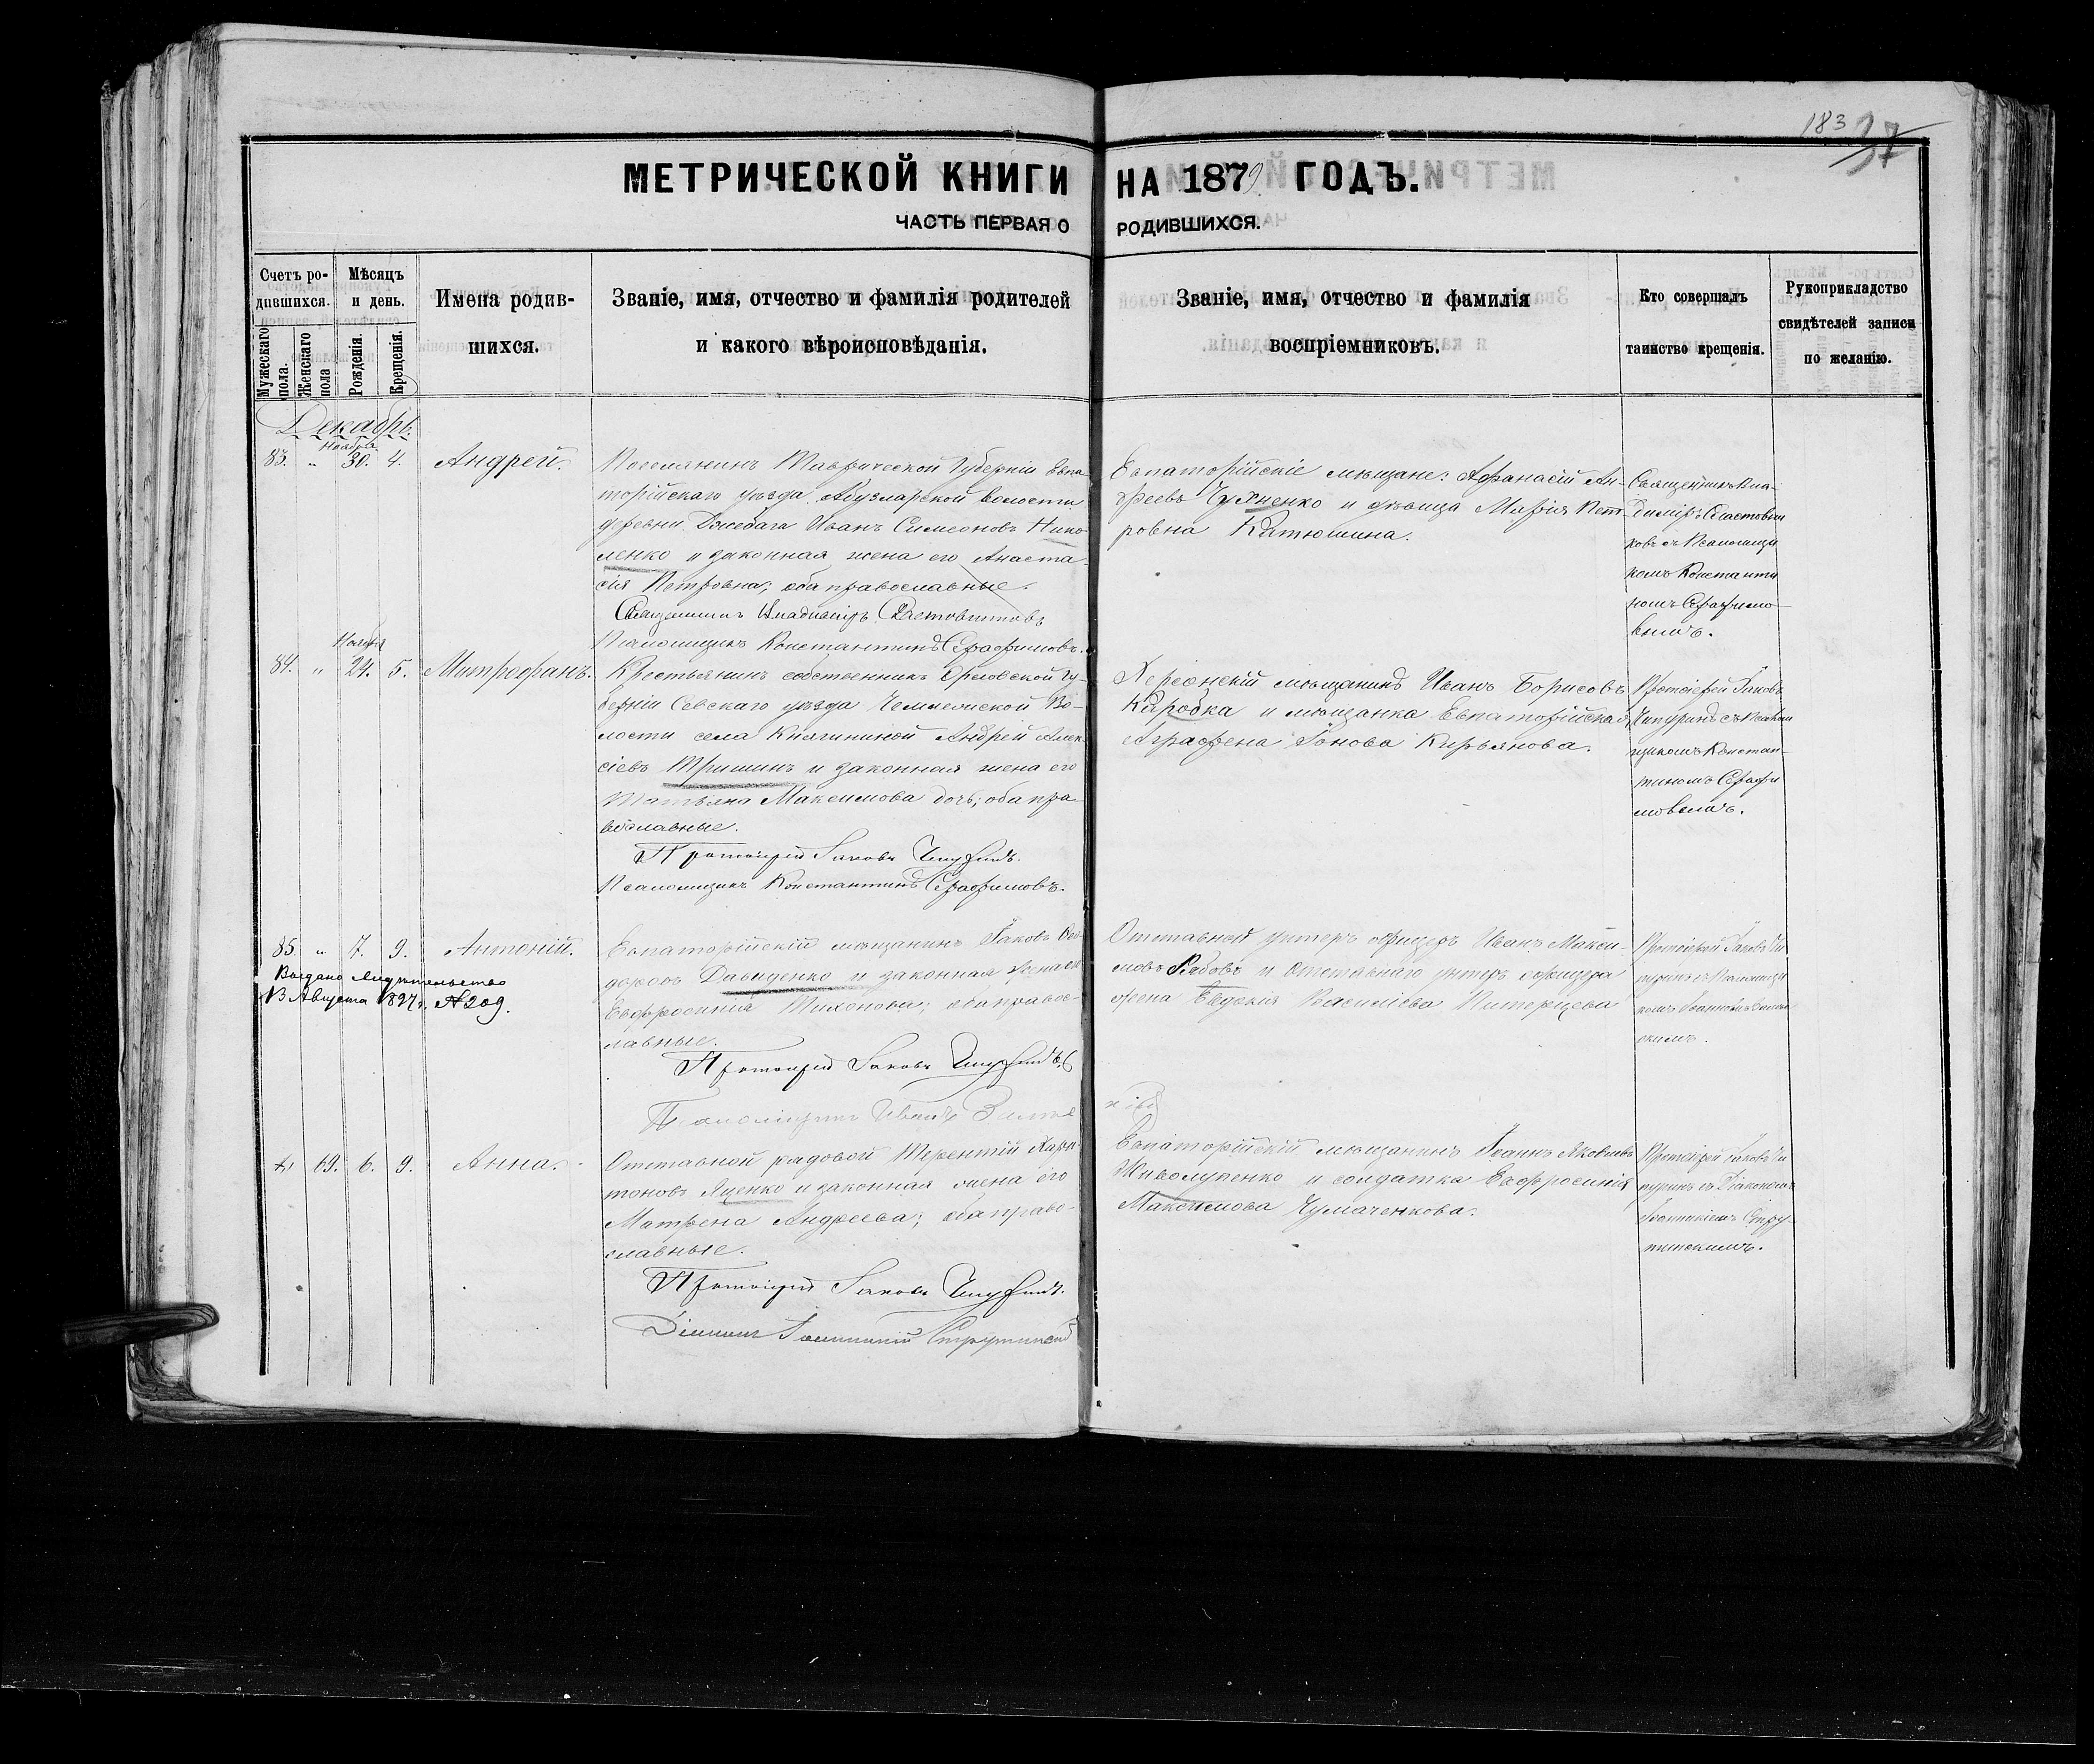 183 37
МЕТРИЧЕСКОЙ КНИГИ НА 1879 ГОДЪ.
ЧАСТЬ ПЕРВАЯ О РОДИВШИХСЯ.
Счетъ ро-
дившихся.
Мужескаго пола.
Женскаго пола
Мѣсяцъ
и день.
Рожденія.
Крещенія.
Имена родив-
шихся.
Званіе, имя, отчество и фамилія родителей
и какого вѣроисповѣданія.
Званіе, имя, отчество и фамилія
воспріемниковъ.
Кто совершалъ
таинство крещенія.
Рукоприкладство
свидѣтелей записи
по желанію.
Декабрь.
Ноября
83. " 30. 4. Андрей.
Поселянинъ Таврической Губерніи Евпа
торійскаго уѣзда, Абузларской волости
деревни Джебага Иванъ Симеоновъ Нико
ленко и законная жена его Анаста
сія Петровна; оба православные.
Священникъ Владиміръ
Псаломщикъ Константинъ Серафимовъ.
Евпаторійскіе мѣщане: Афанасій Ан-
дреевъ и дѣвица Марія Пет
ровна Катюшина.
Священникъ Вла-
диміръ
ковъ съ Псаломщи
комъ Константи
номъ Серафимо-
вымъ.
Ноября
84. " 24. 5. Митрофанъ.
Крестьянинъ собственникъ Орловской Гу-
берніи Севскаго уѣзда Во-
лости села Княгининой Андрей Алек
сіевъ Тришинъ и законная жена его
Татьяна Максимова дочь; оба пра-
вославные.
Протоіерей Іаковъ Чепуринъ.
Псаломщикъ Константинъ Серафимовъ.
Херсонскій мѣщанинъ Иванъ Борисовъ
Каробка и мѣщанка Евпаторійская
Аграфена Іонова Кирьянова.
Протоіерей Іаковъ
Чепуринъ съ Псалом
щикомъ Констан-
тиномъ Серафи
мовымъ.
85. " 7. 9. Антоній.
Выдано свидѣтельство
13 Августа 1897 г. №209.
Евпаторійскій мѣщанинъ Іаковъ Ѳео
доровъ Давиденко и законная жена его
Евфросинія Тихонова; оба правос-
лавные.
Протоіерей Іаковъ Чепуринъ
Псаломщикъ Иванъ
Отставной унтеръ офицеръ Иванъ Макси-
мовъ Рябовъ и отставнаго унтеръ офицера
жена Евдокія Васильева Питерцева
Протоіерей Іаковъ Че
пуринъ съ Псаломщи
комъ
скимъ.
69. 6. 9. Анна.
Отставной рядовой Терентій Хари
тоновъ Яценко и законная жена его
Матрена Андреева; оба право-
славные.
Протоіерей Іаковъ Чепуринъ.
Діаконъ Іоанникій Струтинскій
Евпаторійскій мѣщанинъ Іоаннъ Яковлевъ
Живолупенко и солдатка Евфросинія
Максимова Чумаченкова.
Протоіерей Іаковъ Че
пуринъ съ Діакономъ
Іоанникіемъ Стру-
тинскимъ.